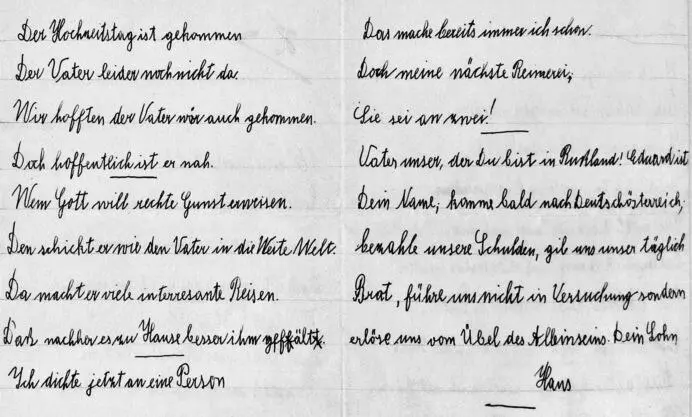 Der Hochzeitstag ist gekommen
Der Vater leider noch nicht da.
Wir hofften der Vater wär auch gekommen.
Doch hoffentlich ist er nah.
Wem Gott will rechte Gunst erweisen.
Den schickt er wie den Vater in die Weite Welt.
Da macht er viele interresante Reisen.
Daß nachher es zu Hause besser ihm gefällt.
Ich dichte jetzt an eine Person
Das mache bereits immer ich schon.
Doch meine nächste Reimerei,
Sie sei an zwei!
Vater unser, der Du bist in Rußland! Eduard ist
Dein Name, komme bald nach Deutschösterreich,
bezahle unsere Schulden, gib uns unser täglich
Brot, führe uns nicht in Versuchung sondern
erlöse uns vom Übel des Alleinseins. Dein Sohn
Hans